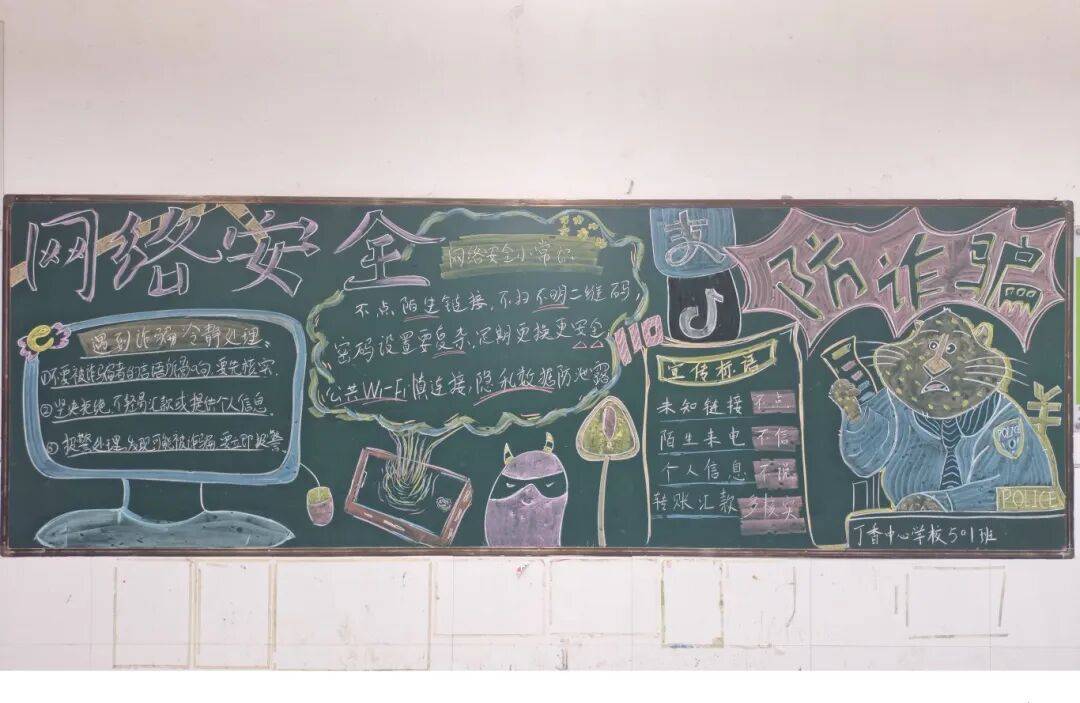 网络安全
遇到诈骗 冷静处理
①不要被诈骗者的言语所
要先核实
②坚决拒绝 不轻易汇款或提供个人信息
③报警处理 发现可能被诈骗 要立即报警
网络安全小常识
不点陌生链接,不扫不明二维码,
密码设置要复杂,定期更换更安全
公共Wi-Fi慎连接,隐私数据防泄露
110
支
防诈骗
宣传标语
未知链接 不点
陌生来电 不信
个人信息 不说
转账汇款 多核实
¥
POLICE
POLICE
丁香中心学校501班